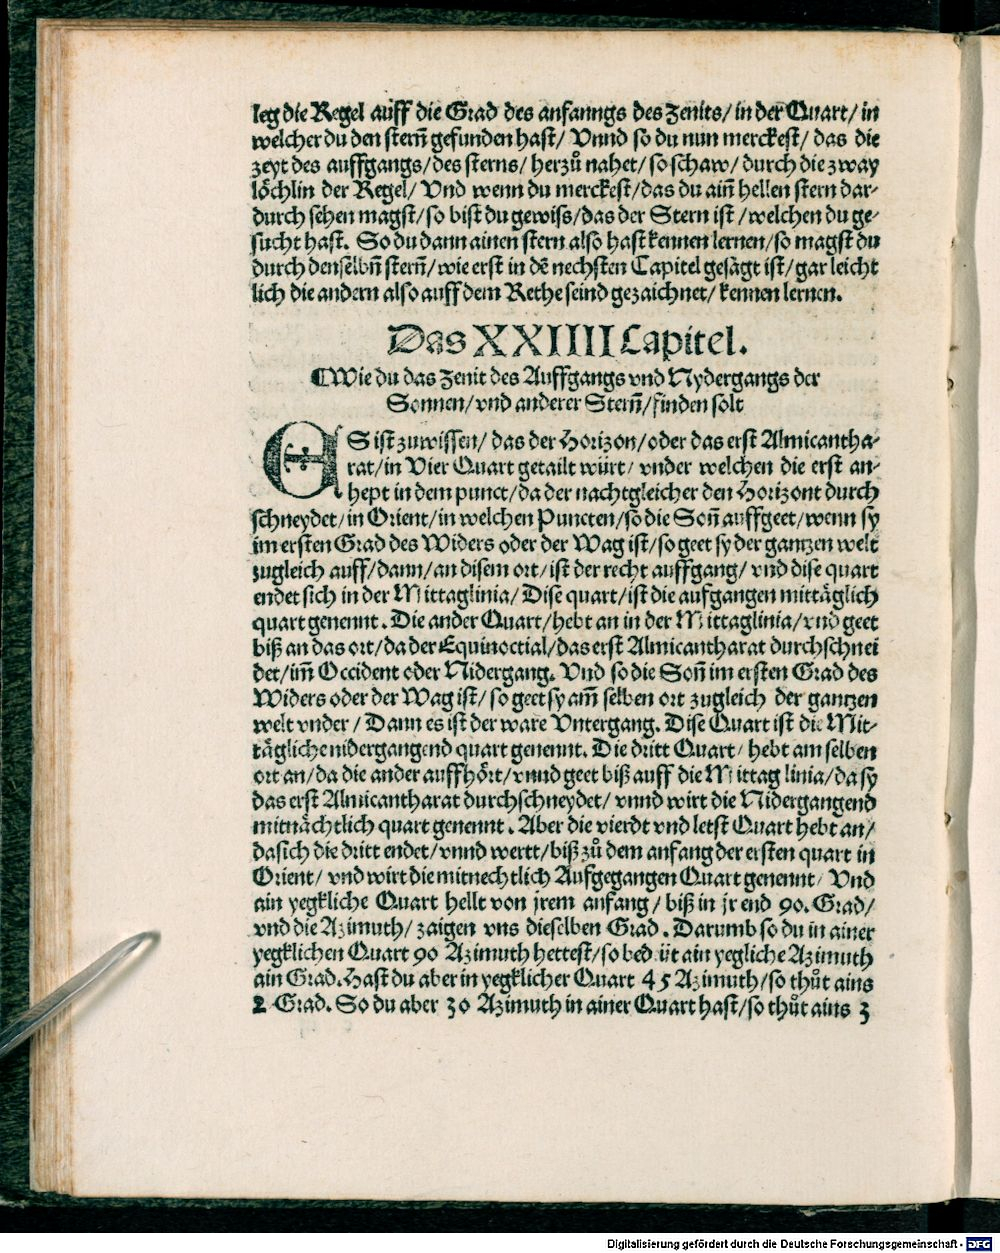 leg die Regel auff die Grad des anfanngs des Zenits/ in der Quart/ in
welcher du den stern̄ gefunden hast/ Vnnd so du nun merckest/ das die
zeyt des auffgangs/ des sterns/ herzů nahet/ so schaw/ durch die zway
löchlin der Regel/ Vnd wenn du merckest/ das du ain̄ hellen stern dar-
durch sehen magst/ so bist du gewiss/ das der Stern ist/ welchen du ge-
sucht hast. So du dann ainen stern also hast kennen lernen/ so magst du
durch denselbn̄ stern̄/ wie erst in dē nechsten Capitel gesagt ist/ gar leicht
lich die andern also auff dem Rethe seind gezaichnet/ kennen lernen.
Das XXIIII Capitel.
¶Wie du das Zenit des Auffgangs vnd Nydergangs der
Sonnen/ vnd anderer Stern̄/ finden solt
ES ist zuwissen/ das der Horizon/ oder das erst Almicantha-
rat/ in Vier Quart getailt würt/ vnder welchen die erst an-
hept in dem punct/ da der nachtgleicher den Horizont durch
schneydet/ in Orient/ in welchen Puncten/ so die Son̄ auffgeet/ wenn sy
im ersten Grad des Widers oder der Wag ist/ so geet sy der gantzen welt
zugleich auff/ dann/ an disem ort/ ist der recht auffgang/ vnd dise quart
endet sich in der Mittaglinia/ Dise quart/ ist die aufgangen mittäglich
quart genennt. Die ander Quart/ hebt an in der Mittaglinia/ vnd geet
biß an das ort/ da der Equinoctial/ das erst Almicantharat durchschnei
det/ im̄ Occident oder Nidergang. Vnd so die Son̄ im ersten Grad des
Widers oder der Wag ist/ so geet sy am̄ selben ort zugleich der gantzen
welt vnder/ Dann es ist der ware Vntergang. Dise Quart ist die Mit-
tägliche nidergangend quart genennt. Die dritt Quart/ hebt am selben
ort an/ da die ander auffhört/ vnnd geet biß auff die Mittag linia/ da sy
das erst Almicantharat durchschneydet/ vnnd wirt die Nidergangend
mitnächtlich quart genennt. Aber die vierdt vnd letst Quart hebt an/
dasich die dritt endet/ vnnd wertt/ biß zů dem anfang der ersten quart in
Orient/ vnd wirt die mitnechtlich Aufgegangen Quart genennt/ Vnd
ain yegkliche Quart hellt von jrem anfang/ biß in jr end 90. Grad/
vnd die Azimuth/ zaigen vns dieselben Grad. Darumb so du in ainer
yegklichen Quart 90 Azimuth hettest/ so bedüt ain yegliche Azimuth
ain Grad. Hast du aber in yegklicher Quart 45 Azimuth/ so thůt ains
2 Grad. So du aber 30 Azimuth in ainer Quart hast/ so thůt ains 3
Digitalisierung gefördert durch die Deutsche Forschungsgemeinschaft - DFG